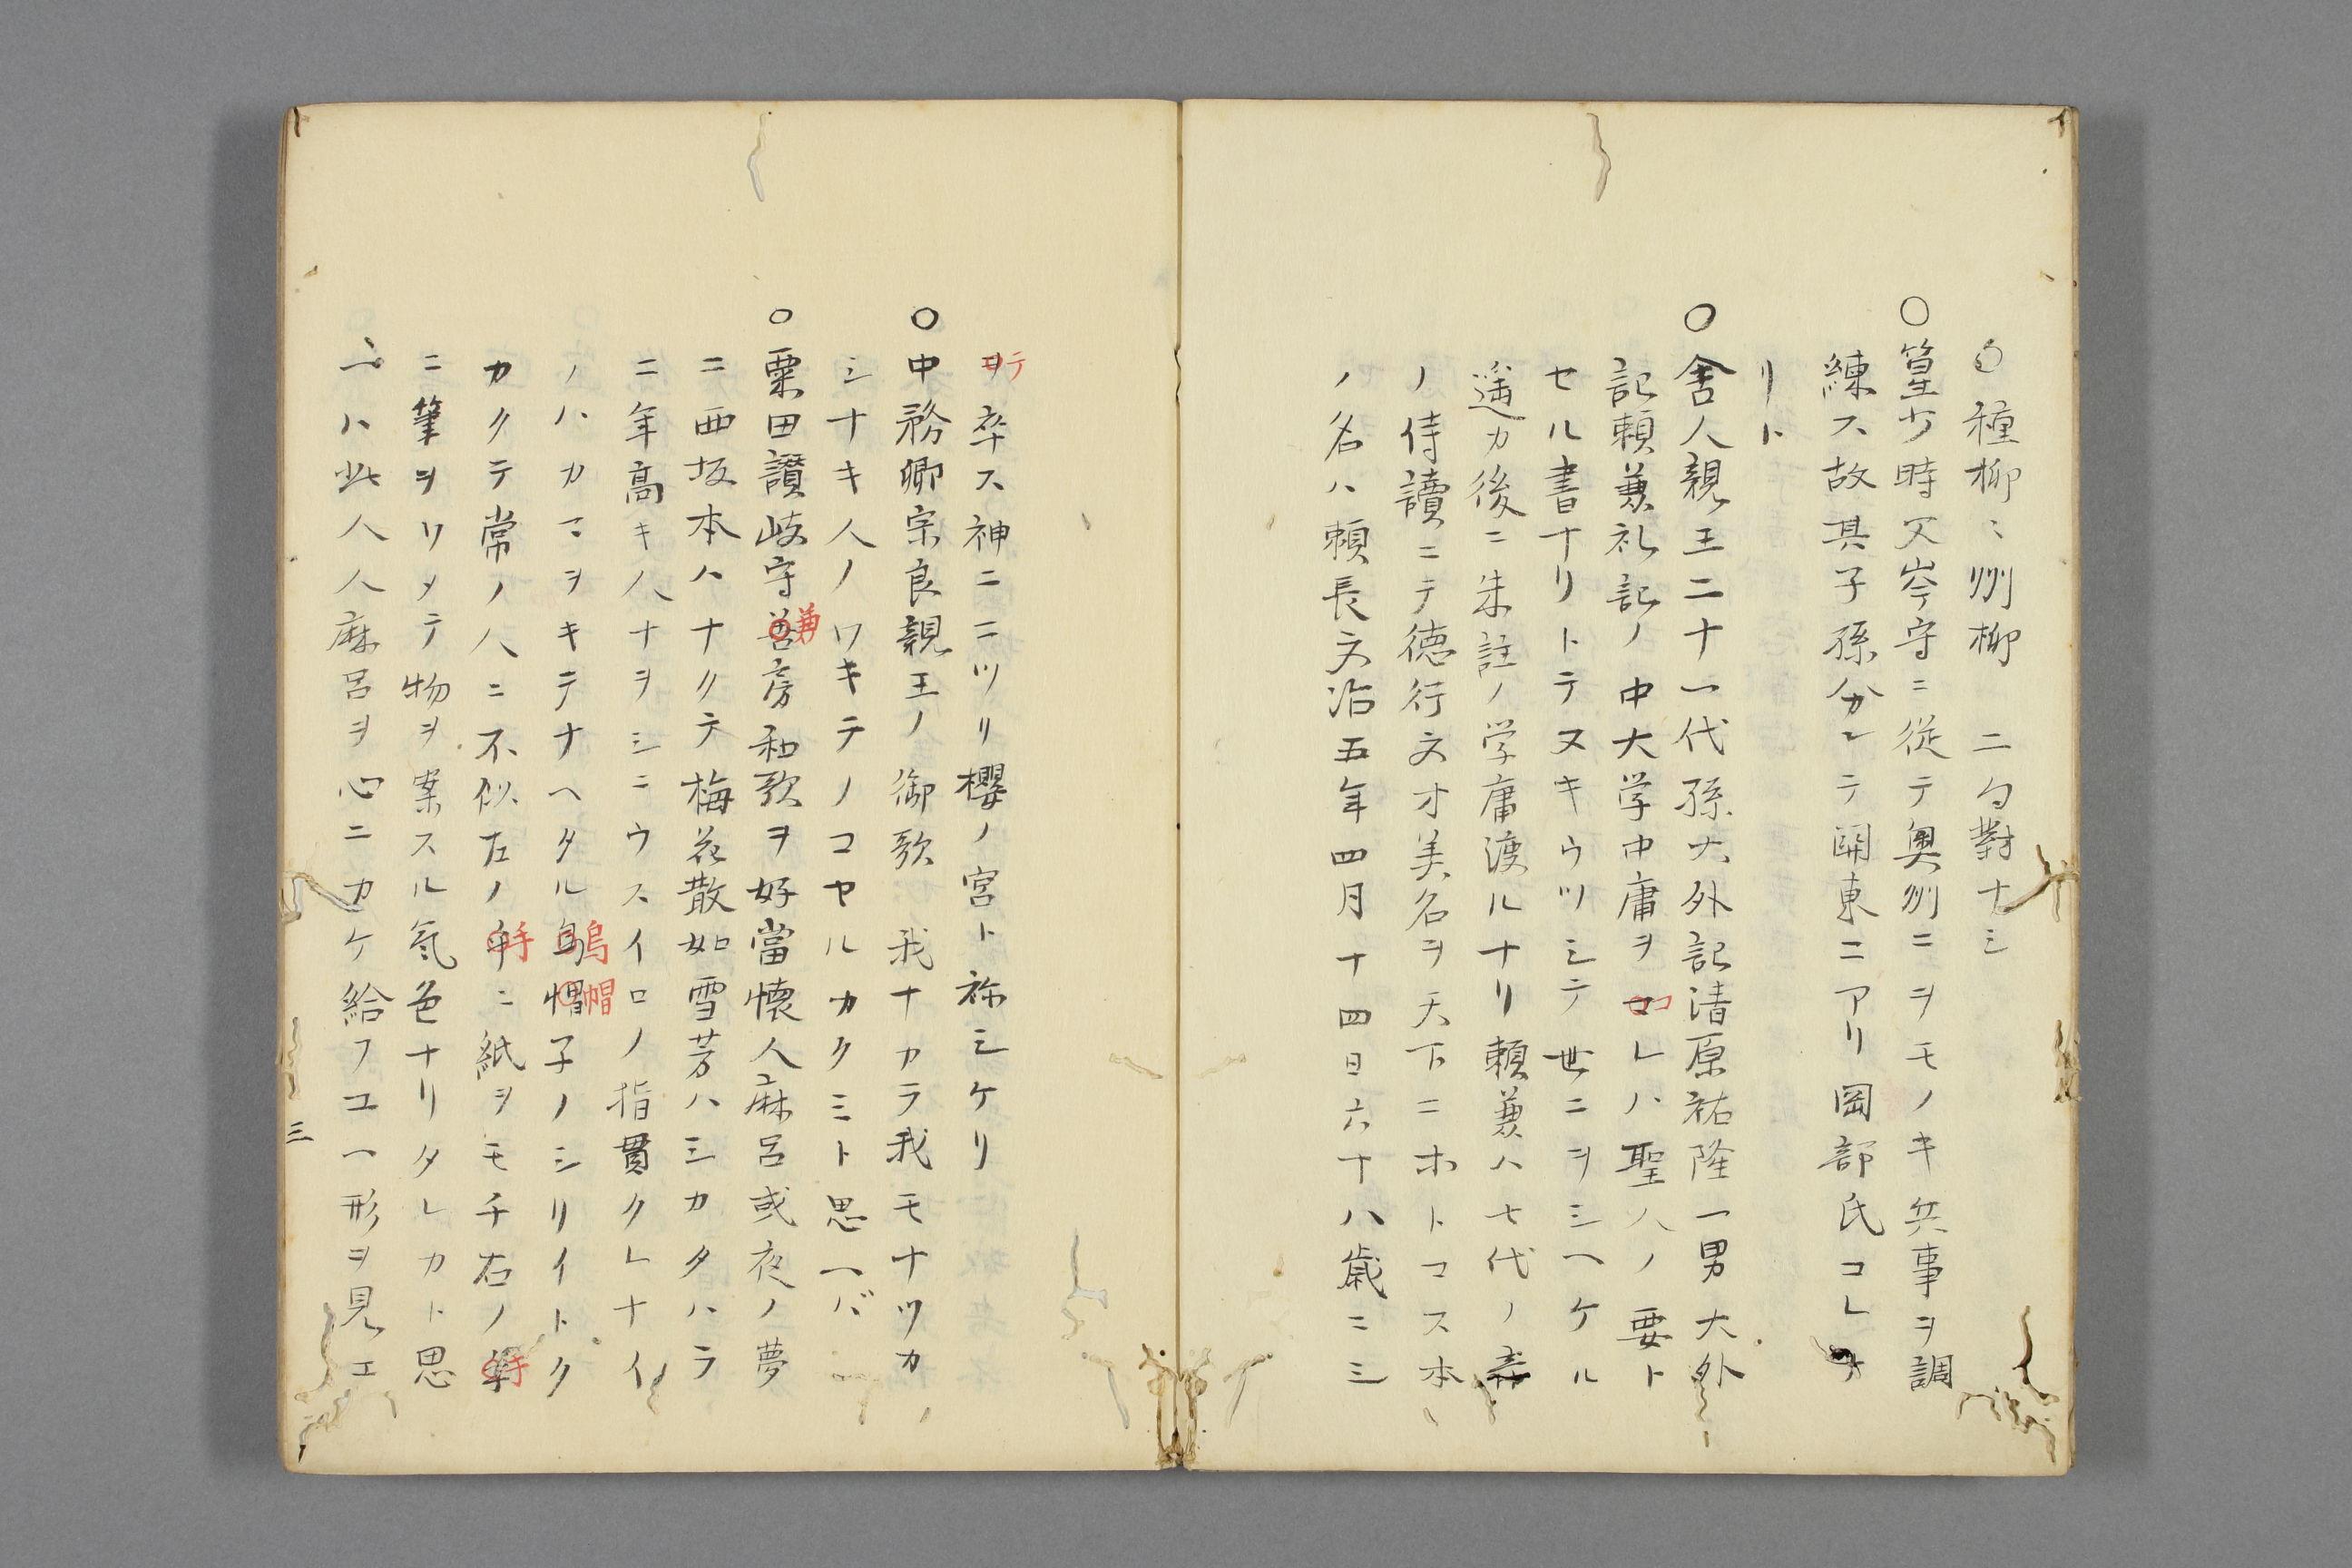 ○種柳〻州柳 二句對ナシ
○篁少時父岑守ニ從テ奥州ニヲモノキ兵事ヲ調
練ス故其子孫分レテ関東ニアリ岡部氏コレナ
リト
○舎人親王二十一代孫大外記清原祐隆一男大外
記頼兼礼記ノ中大学中庸ヲ コレハ聖人ノ要ト
セル書ナリトテヌキウツシテ世ニヲシヘケル
遥カ後ニ朱註ノ学庸渡ルナリ頼兼ハ七代ノ帝
ノ侍讀ニテ徳行文才美名ヲ天下ニホトコス本
ノ名ハ頼長文治五年四月十四日六十八歳ニシ
テ卒ス神ニニツリ櫻ノ宮ト祢シケリ
○中務卿宗良親王ノ御歌 我ナカラ我モナツカ
シナキ人ノワキテノコヤルカクミト思ヘバ
○粟田讃岐守兼房和歌ヲ好當懐人麻呂或夜ノ夢
ニ西坂本ハナクテ梅花散如雪芳ハシカタハラ
ニ年高キ人ナヲシニウスイロノ指貫クレナイ
ノハカマヲキテナヘタル烏帽子ノシリイトク
カクテ常ノ人ニ不似左ノ手ニ紙ヲモチ右ノ手
ニ筆ヲリメテ物ヲ案スル気色ナリタレカト思
ニハ此人人麻呂ヲ心ニカケ給フユヘ形ヲ見エ
三